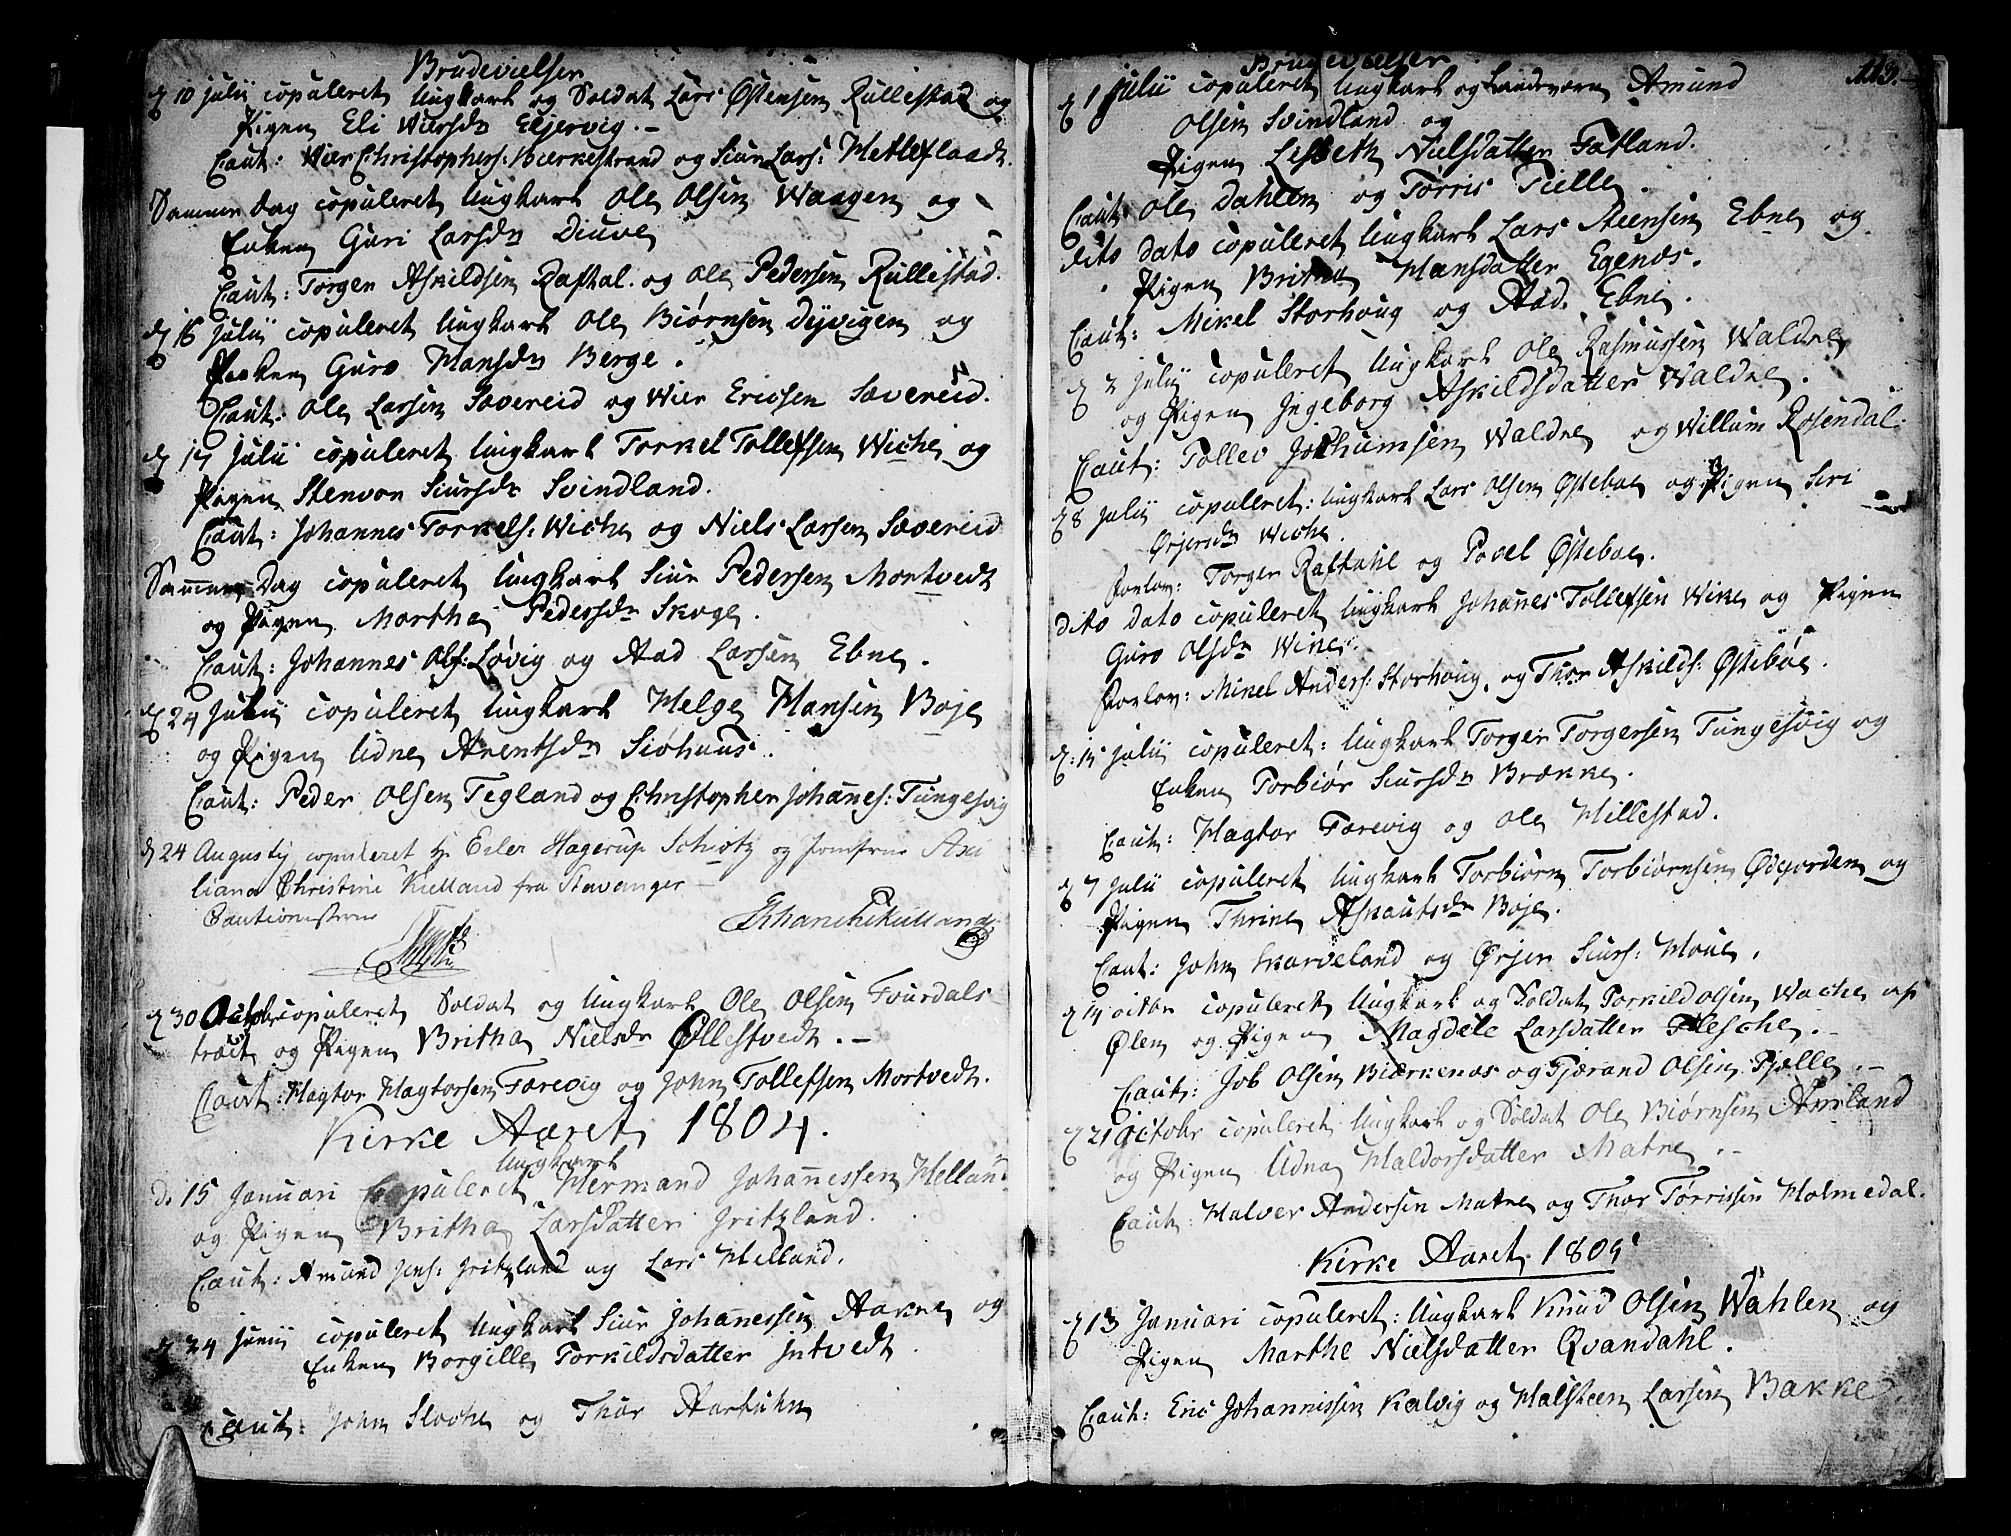 Brudevielser
d 10 Julii copuleret Ungkarl og Soldat Lars Østensen Rullestad og
Pigen Eli Wiersdr Eljervig. -
Caut: Wier Christophers: Bierkestrand og Siur Lars: Hetleflaadt.
Samme Dag copuleret Ungkarl Ole Olsen Waagen og
Enken Guri Larsdr Diuve
Caut: Torger Askildsen Raftal. og Ole Pedersen Rullestad.
d 16 Julii copuleret Ungkarl Ole Biørnsen Dyvigen og
Guro Hansdr Berge.
Caut: Ole Larsen Søvereid og Wier Ericsen Søvereid.
d 17 Julii copuleret Ungkarl Torkel Tollefsen Wiche og
Pigen Stenvor Siursdr Svindland.
Caut: Johannes Torkels: Wiche og Niels Larsen Søvereid
Samme Dag copuleret Ungkarl Siur Pedersen Mortvedt
og Pigen Martha Pedersdr Skoge.
Caut: Johannes Løvig og Aad Larsen Ebne.
d 24 Julii copuleret Ungkarl Helge Hansen Boje
og Pigen Udne Arentsdr Siøhuus.
Caut: Peder Olsen Tegland og Christopher Johanes: Tungesvig
d 24 Augusty copuleret Hr Eiler Hagerup Schiøtz og Jomfrue Axi
liana Christine Kielland fra Stavanger -
Cautionisterne
d 30 Octobr copuleret Soldat og Ungkarl Ole Olsen Fourdals
træet og Pigen Britha Nielsdr Øllestvedt. -
Caut: Hagtor Hagtorsen Førevig og John Tollefsen Mortvedt.
Kirke Aaret 1804.
Ungkarl
D: 15 Januari Copuleret Hermand Johanessen Helland
og Pigen Britha Larsdatter Fritzland.
Caut: Amund Jens: Fritzland og Lars Helland.
d 24 Junii copuleret Ungkarl Siur Johanessen Aakre og
Enken Borgille Torkildsdatter Intvedt.
Caut: John og Thor
Brudevielser
113.
d 1 Julii copuleret Ungkarl og Landværn Amund
Olsen Svindland og
Pigen Lisbeth Nielsdatter Fatland.
Caut: Ole Dahlen og Tørris Tielle.
dito dato copuleret Ungkarl Lars Steensen Ebne og
Pigen Britha Hansdatter Egenæs.
Caut: Mikel Storhoug og Aad Ebne.
d 2 Julii copuleret Ungkarl Ole Rasmussen Waldre
og Pigen Ingeborg Askildsdatter Waldre.
Caut: Tollev Jochumsen Waldre og Willum Rosendal.
d 8 Julii copuleret: Ungkarl Lars Olsen Østebøe og Pigen Siri
Ørjersdr Wiche.
Forlov: Torger Raftahl og Povel Østebøe.
dito dato copuleret Ungkarl Johanes Tollefsen Wike og Pigen
Guro Olsdr Wike.
Forlov: Mikel Anders: Storhoug, og Thor Askilds: Østebøe.
d: 15 Julii copuleret: Ungkarl Torger Torgersen Tungesvig og
Enken Torbiør Siursdr Brække.
Caut: Hagtor Førevig og Ole Millestad.
d 7 Julii copuleret Ungkarl Torbiørn Torbiørnsen Ødegorden og
Pigen Thrine Asкautsdr Boje.
Caut: John Skarveland og Ørjer Siurs: Moue.
d 14 octbr copuleret Ungkarl og Soldat Torkild Olsen Wache ap
Ølen og Pigen Magdele Larsdatter Flesche. -
Caut: Job Olsen Biørkenæs og Tjærand Olsen Fjelle. -
d 21 Octobr copuleret Ungkarl og Soldat Ole Biørnsen Aurland
og Pigen Udna Haldorsdatter Matre. -
Caut: Halver Andersen Matre og Thor Tørrissen Holmedal.
Kirke Aaret 1805
d 13 Januari copuleret: Ungkarl Knud Olsen Wahlen og
Pigen Marthe Nielsdatter Qvandahl.
Caut: Eric Johannissen Kalvig og Halsteen Larsen Bakke